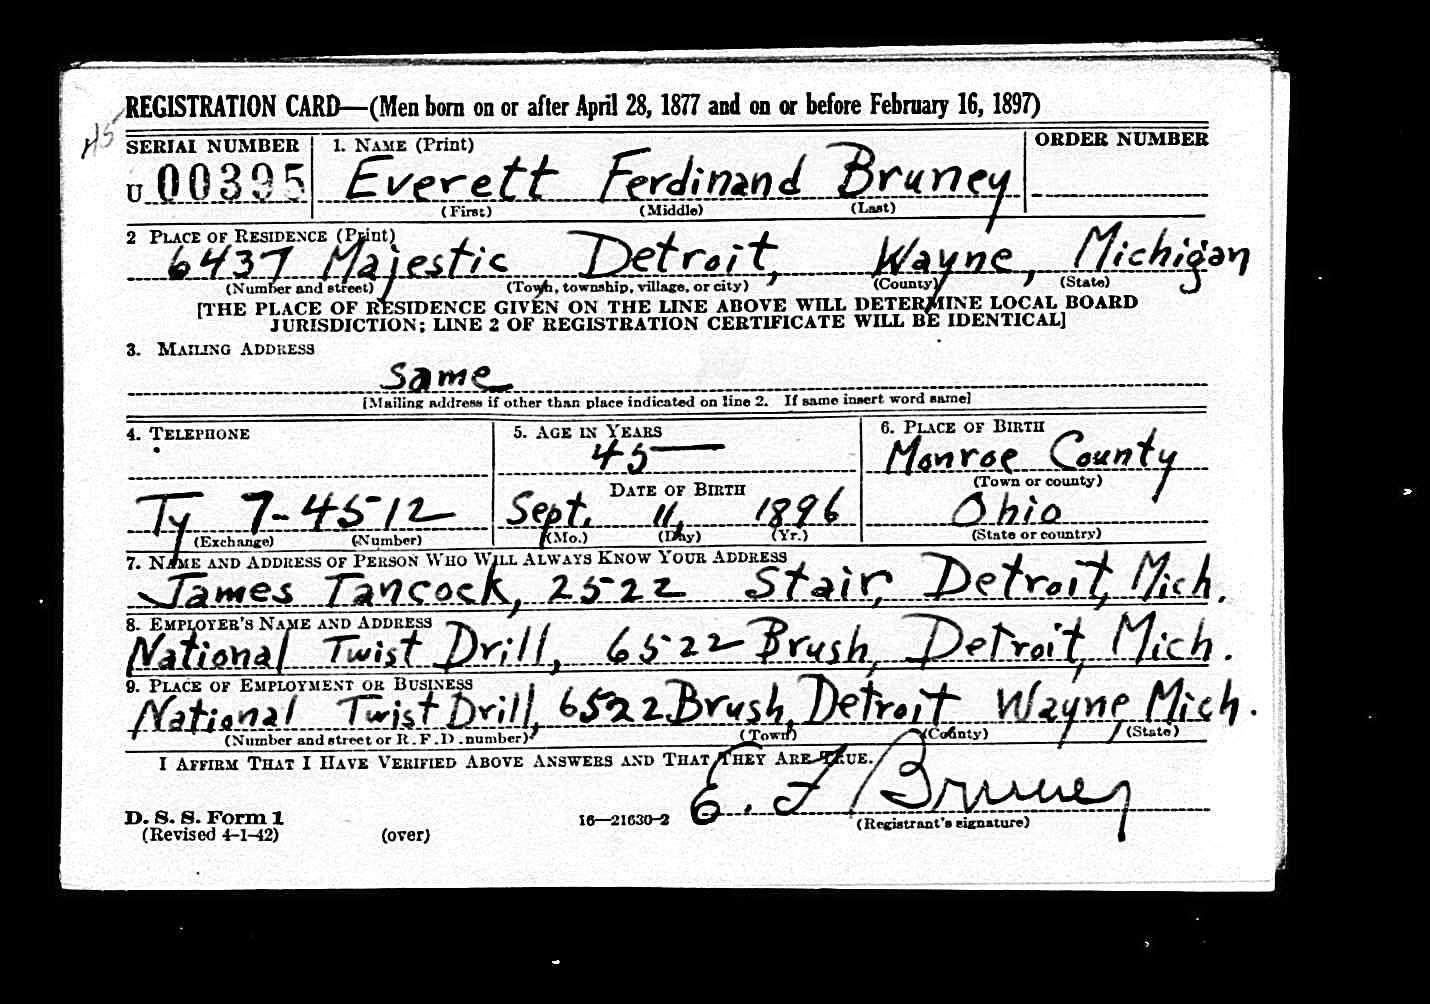 REGISTRATION CARD—(Men born on or after April 28, 1877 and on or before February 16, 1897)
45
SERIAL NUMBER 1. NAME (Print) ORDER NUMBER
U 00395 Everett Ferdinand Bruney
(First) (Middle) (Last)
2 PLACE OF RESIDENCE (Print)
6437 Majestic Detroit, Wayne, Michigan
(Number and street) (Town, township, village, or city) (County) (State)
[THE PLACE OF RESIDENCE GIVEN ON THE LINE ABOVE WILL DETERMINE LOCAL BOARD
JURISDICTION; LINE 2 OF REGISTRATION CERTIFICATE WILL BE IDENTICAL]
3. MAILING ADDRESS
same
[Mailing address if other than place indicated on line 2. If same insert word same]
4. TELEPHONE 5. AGE IN YEARS 6. PLACE OF BIRTH
45 Monroe County
(Town or county)
DATE OF BIRTH
Ty 7-4512 Sept. 11, 1896 Ohio
(Exchange) (Number) (Mo.) (Day) (Yr.) (State or country)
7. NAME AND ADDRESS OF PERSON WHO WILL ALWAYS KNOW YOUR ADDRESS
James Tancock, 2522 Stair, Detroit, Mich.
8. EMPLOYER'S NAME AND ADDRESS
National Twist Drill, 6522 Brush, Detroit, Mich.
9. PLACE OF EMPLOYMENT OR BUSINESS
National Twist Drill, 6522 Brush, Detroit Wayne, Mich.
(Number and street or R. F. D. number) (Town) (County) (State)
I AFFIRM THAT I HAVE VERIFIED ABOVE ANSWERS AND THAT THEY ARE TRUE.
E. F Bruney
D. S. S. Form 1
(Revised 4-1-42) (over) 16—21630-2 (Registrant's signature)